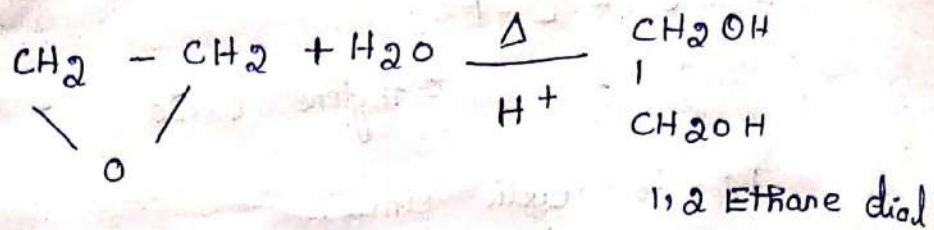 CH2 - CH2 + H2O Δ CH2OH
\ / H+ |
O CH2OH
1,2 Ethane diol